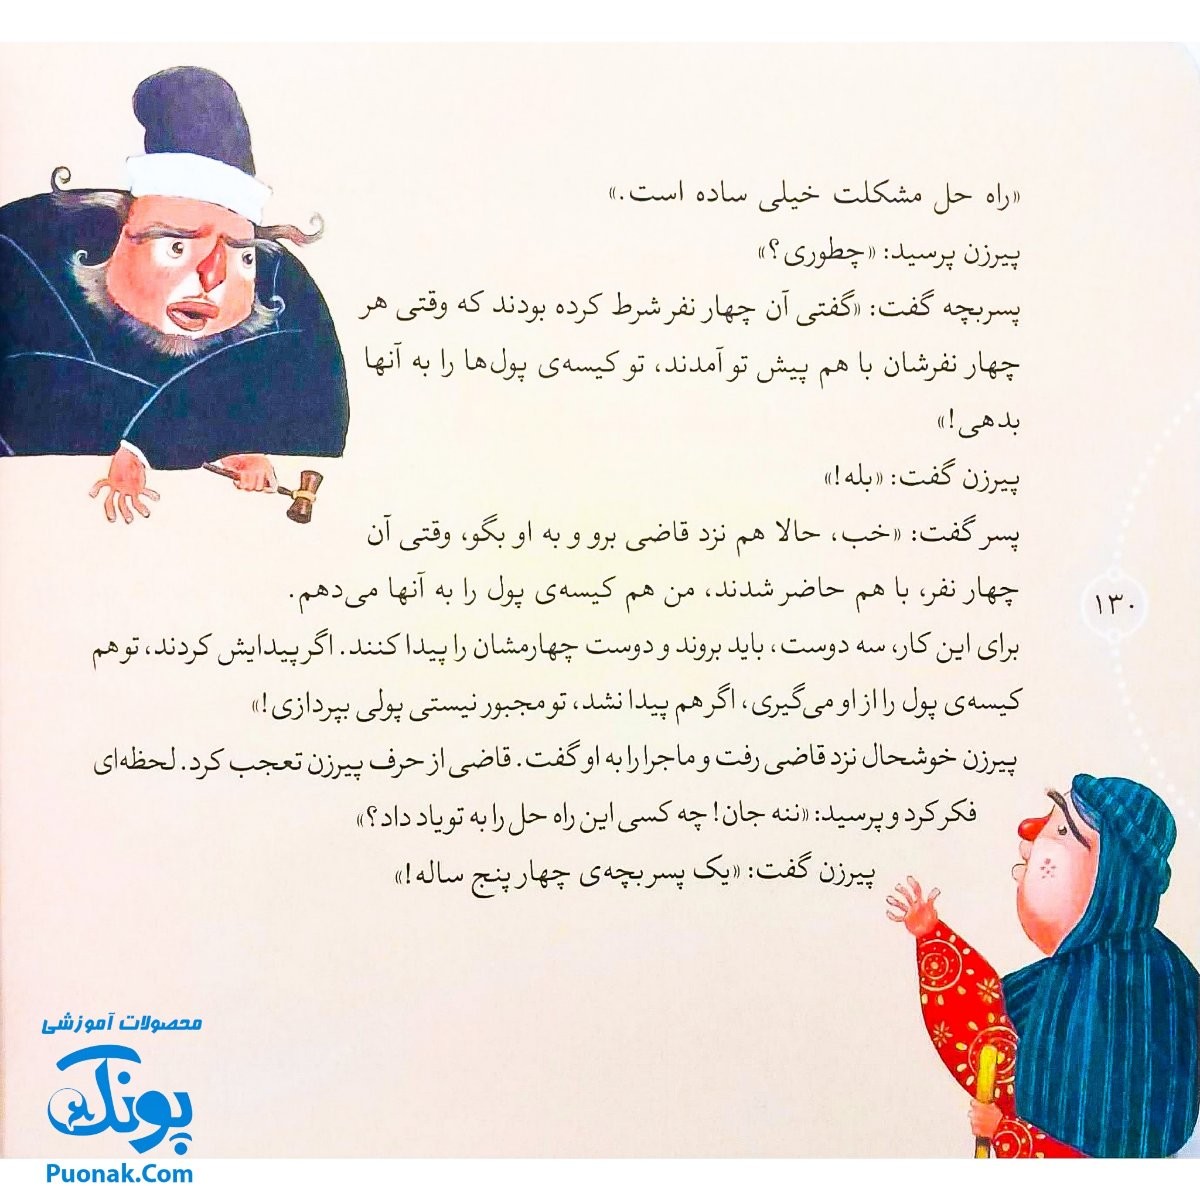 «راه حل مشکلت خیلی ساده است.»
پیرزن پرسید: «چطوری؟»
پسربچه گفت: «گفتی آن چهار نفر شرط کرده بودند که وقتی هر
چهار نفرشان با هم پیش تو آمدند، تو کیسه‌ی پول‌ها را به آنها
بدهی!»
پیرزن گفت: «بله!»
پسر گفت: «خب، حالا هم نزد قاضی برو و به او بگو، وقتی آن
چهار نفر، با هم حاضر شدند، من هم کیسه‌ی پول را به آنها می‌دهم.
برای این کار، سه دوست، باید بروند و دوست چهارمشان را پیدا کنند. اگر پیدایش کردند، تو هم
کیسه‌ی پول را از او می‌گیری، اگر هم پیدا نشد، تو مجبور نیستی پولی بپردازی!»
پیرزن خوشحال نزد قاضی رفت و ماجرا را به او گفت. قاضی از حرف پیرزن تعجب کرد. لحظه‌ای
فکر کرد و پرسید: «ننه جان! چه کسی این راه حل را به تو یاد داد؟»
پیرزن گفت: «یک پسربچه‌ی چهار پنج ساله!»
۱۳۰
محصولات آموزشی
پونک
Puonak.Com